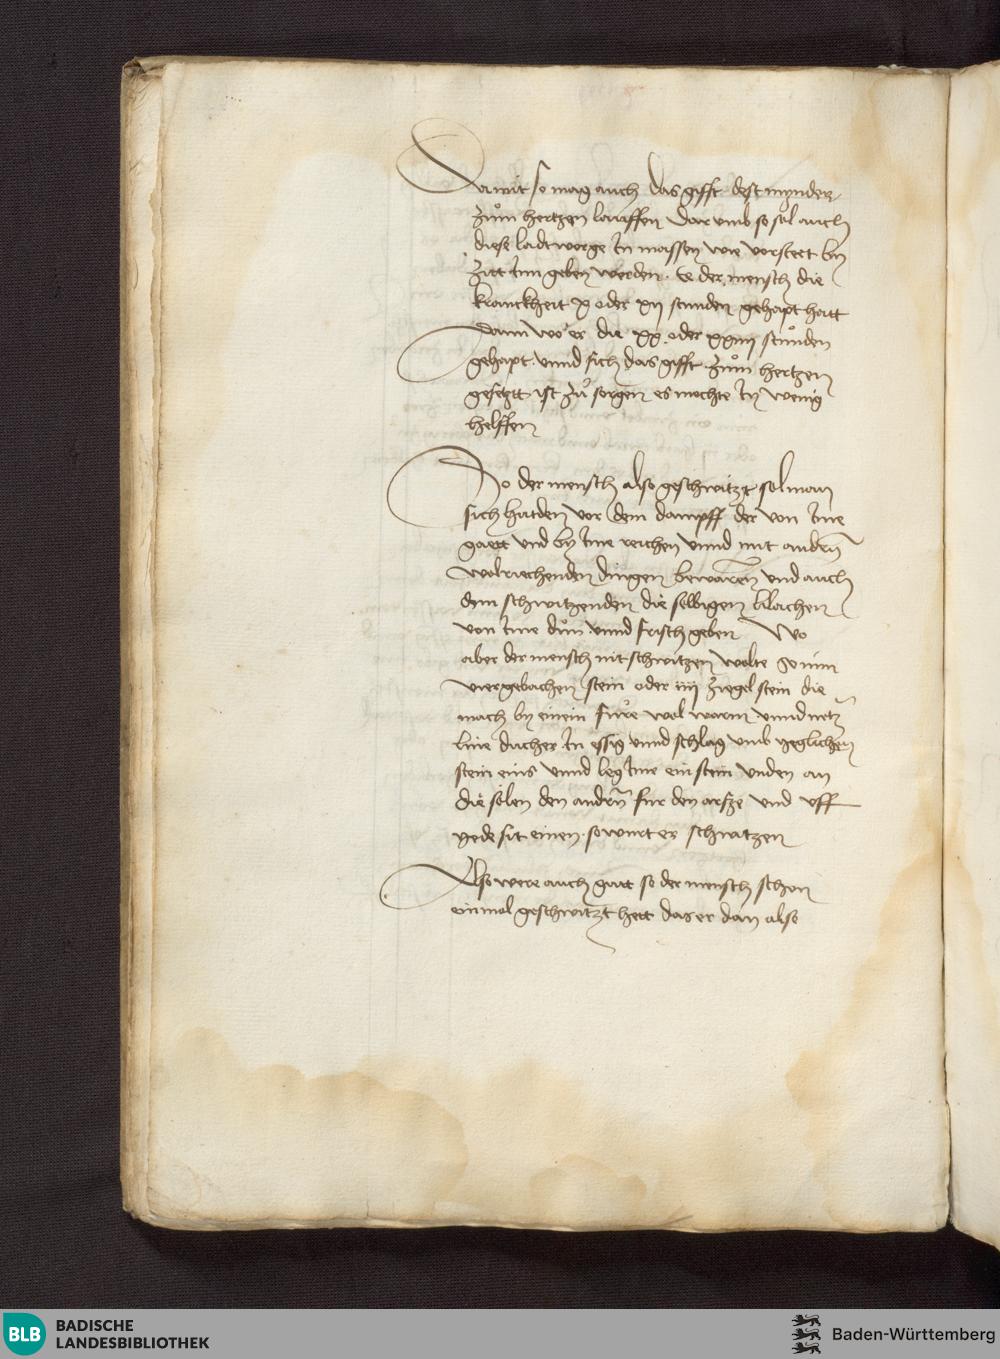 Damit so mag auch das gifft dest mynder
zům hertzen lauffen Dar umb so sol auch
diese ladtwerge In massen wie vorstett by
zitt Inn geben werden. Ee der mensch die
kranckheit x oder xii stunden gehapt hatt
Dann wo er die xx oder xxiiii stůnden
gehapt. unnd sich das gifft zům hertzen
gesetzt ist zů sorgen es mochte In wenig
helffen
So der mensch also geschwitzt sol man
sich hutden vor dem dampff der von Ime
gaett und by Ime reichen unnd mit andrn
wolriechenden dingen bewaren und auch
dem schwitzenden die selbigen blachen
von Ime důn unnd frisch geben Wo
aber der mensch nit schwitzen wolte So nim
vier gebachen stein oder iiii ziegel stein die
mach by einem fure wol warm unnd netz
line ducher In essig unnd schlag umb yeglichen
stein eins unnd leg Ime ein stein unden an
die solen den andrn fur den arsze und uff
yede sit einen. so wurt er schwitzen
Also were auch gutt so der mensch schon
einmol geschwitzt hett das er dan also
BLB
BADISCHE
LANDESBIBLIOTHEK
Baden-Württemberg